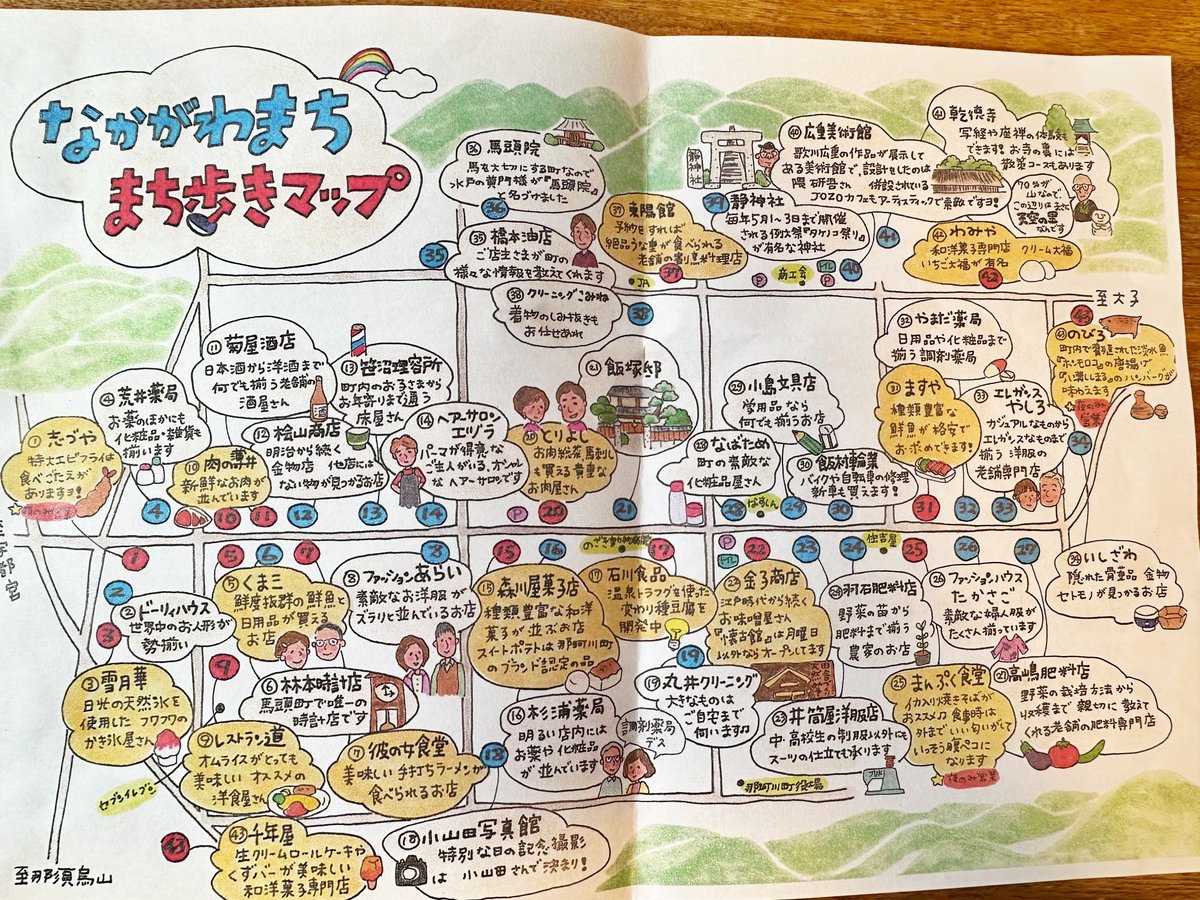 なかがわまち
まち歩きマップ
㊱ 馬頭院
馬を大切にする町なので
水戸の黄門様が『馬頭院』
と名づけました
36
㉟ 橋本油店
ご店主さまが町の
様々な情報を教えてくれます
35
㊲ 東陽館
予約をすれば
絶品うな重が食べられる
老舗の割烹料理店
37
JA
静神社
㊴ 静神社
毎年5月1〜3日まで開催
される例大祭『タケノコ祭り』
が有名な神社
39
㊵ 広重美術館
歌川広重の作品が展示して
ある美術館で、設計をしたのは
隈 研吾さん 併設されている
JOZOカフェもアーティスティックで素敵ですヨ!
㊶ 乾徳寺
写経や座禅の体験も
できます! お寺の裏には
散策コースもあります
70%が
山なので、
この辺りはまさに
天空の里
なんです
41
㊷ わみや
和洋菓子専門店 クリーム大福
いちご大福が有名
42
P
商工会
トイレ
P
40
至大子
㊳ クリーニングこみね
着物のしみ抜きも
お任せあれ
38
⑪ 菊屋酒店
日本酒から洋酒まで
何でも揃う老舗の
酒屋さん
酒
⑬ 笹沼理容所
町内のお子さまから
お年寄りまで通う
床屋さん
④ 荒井薬局
お薬のほかにも
化粧品・雑貨も
揃います
⑫ 桧山商店
明治から続く
金物店 他店には
ない物が見つかるお店
⑭ ヘアーサロン
エヅラ
パーマが得意な
ご主人がいる、オシャレ
なヘアーサロンです
① 志づや
特大エビフライは
食べごたえが
ありますヨ!
夜のみ営業
⑩ 肉の薄井
新鮮なお肉が
並んでいます
⑳ とりよし
お肉、総菜、馬刺し
も買える貴重な
お肉屋さん
㉑ 飯塚邸
㉙ 小島文具店
学用品なら
何でも揃うお店
㉘ なばため
町の素敵な
化粧品屋さん
㉚ 飯村輪業
バイクや自転車の修理
新車も買えます!
㉜ やまだ薬局
日用品や化粧品まで
揃う調剤薬局
㉛ ますや
種類豊富な
鮮魚が格安で
お求めできます!
㉝ エレガンス
やしろ
カジュアルなものから
エレガンスなものまで
揃う洋服の
老舗専門店
43
のびろ
町内で養殖された淡水魚
『ホンモロコ』の唐揚げ
のハンバーグが
味わえます
夜のみ
営業
34
4
10
11
12
13
14
P
20
21
28
なすくん
29
30
31
32
33
至宇都宮
1
5
6
7
8
15
16
のざき
17
P
トイレ
22
23
24
住吉屋
25
26
27
2
② ドーリィハウス
世界中のお人形が
勢揃い
3
③ 雪月華
日光の天然氷を
使用した フワフワの
かき氷屋さん
⑤ くま三
鮮度抜群の鮮魚と
日用品が買える
お店
⑧ ファッションあらい
素敵なお洋服が
ズラリと並んでいるお店
9
⑥ 林本時計店
馬頭町で唯一の
時計店です
⑮ 森川屋菓子店
種類豊富な和洋
菓子が並ぶお店
スイートポテトは那珂川町
のブランド認定の品
⑰ 石川食品
温泉トラフグを使った
変わり種豆腐を
開発中
㉒ 金子商店
江戸時代から続く
お味噌屋さん
『懐古館』は月曜日
以外ならオープンしてます
㉔ 羽石肥料店
野菜の苗から
肥料まで揃う
農家のお店
㉖ ファッションハウス
たかさご
素敵な婦人服が
たくさん揃っています
㉞ いしざわ
隠れた骨董品 金物
セトモノが見つかるお店
19
⑲ 丸井クリーニング
大きなものは
ご自宅まで
伺います♪
㉓ 井筒屋洋服店
中・高校生の制服以外にも
スーツの仕立ても承ります
JUKI
㉕ まんぷく食堂
イカ入り焼きそばが
おススメ♪ 食事時は
外までいい匂いがして
いっそう腹ペコに
なります
夜のみ営業
㉗ 高嶋肥料店
野菜の栽培方法から
収穫まで 親切に教えて
くれる老舗の肥料専門店
⑨ レストラン道
オムライスがとっても
美味しい オススメの
洋食屋さん
⑦ 彼の女食堂
美味しい手打ちラーメンが
食べられるお店
⑯ 杉浦薬局
明るい店内には
お薬や化粧品
が並んでいます
調剤薬局
デス
18
セブンイレブン
那珂川町役場
43
㊸ 千年屋
生クリームロールケーキや
くずバーが美味しい
和洋菓子専門店
⑱ 小山田写真館
特別な日の記念撮影
は 小山田さんで決まり!
至那須烏山